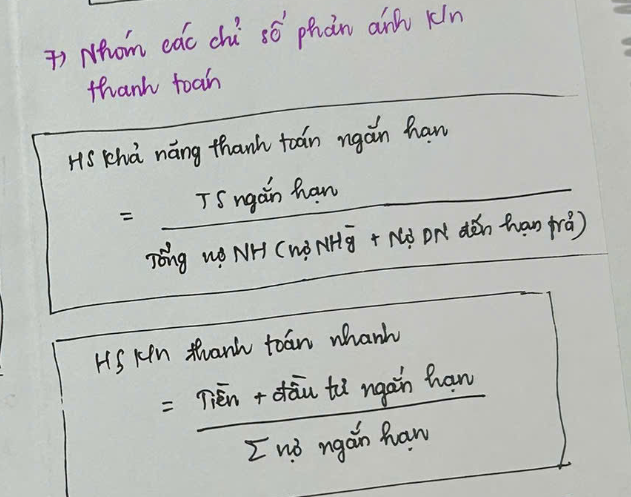 7) Nhóm các chỉ số phản ánh k/n
thanh toán
HS khả năng thanh toán ngắn hạn
= TS ngắn hạn
Tổng nợ NH (nợ NH + Nợ DN đến hạn trả)
HS k/n thanh toán nhanh
= Tiền + đầu tư ngắn hạn
Σ nợ ngắn hạn